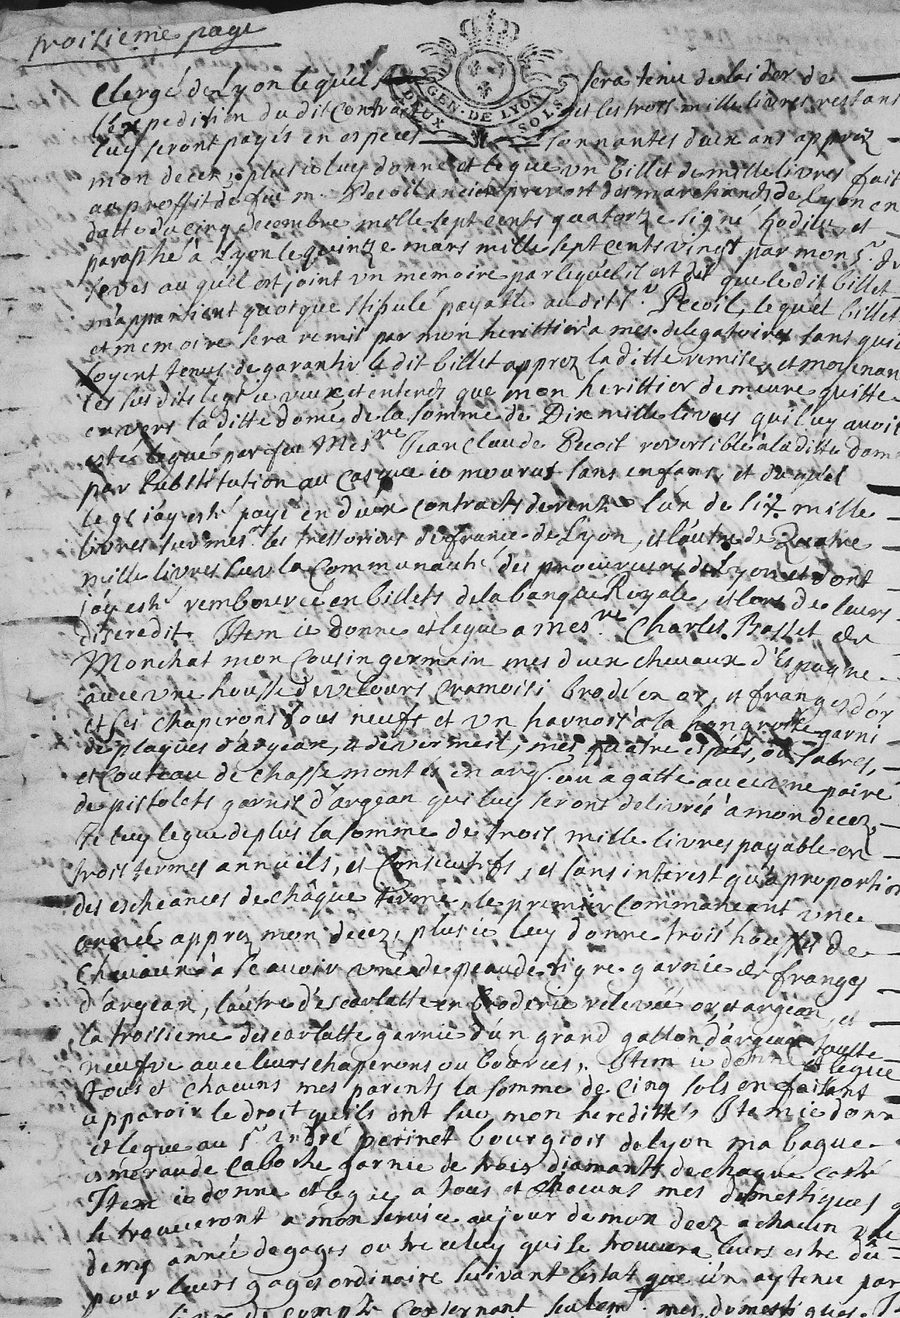 troisieme page
GEN. DE LYON
DEUX SOLS
Clergé de Lyon lequel sera tenu de laider de
l'expedition du dit contra et les trois mille livres restans
luy seront payés en especes sonnantes dun an apprez
mon decez, plus ie luy donne et legue un billet de mille livres fait
au proffit de feu m. Pecoil ancien prevost des marchands de Lyon en
datte du cinq decembre mille sept cents quatorze signé hodieu, et
paraphé à Lyon le quinze mars mille sept cents vingt par monsr. de
seves au quel est joint un memoire par lequel il est dit que le dit billet
m'appartient quoique stipulé payable au dit sr. Pecoil, lequel billet
et memoire sera remis par mon herittier a mes delegatoires sans qu'il
soyent tenus de garantir le dit billet apprez la ditte remise, et moienan
les susdits legs ie veux et entends que mon herittier demeure quitte
envers la ditte dame de la somme de Dix mille livres qui luy avoit
esté legué par feu Mesre Jean Claude Pecoil reversible à la ditte dame
par substitution au cas que ie mourut sans enfans, et du quel
legs j'ay esté payé en deux contracts de rente l'un de six mille
livres sur mesrs. les tressoriers de france de Lyon, et l'autre de Quatre
mille livres sur la Communauté des procureurs de Lyon et dont
j'ay esté remboursé en billets de la banque Royale, et lors de leurs
discredit. Item ie donne et legue a mesre. Charles Basset de
Monchat mon Cousin germain mes deux chevaux d'Espagne
avec une housse de velours cramoisi brodé en or, et franges d'or
et ses chaperons tous neufs et un harnois a la hongroise garni
de plaques d'argean, et de vermeil, mes quatre espés, ou sabres,
et Couteau de chasse montés en arg. ou agatte avec une paire
de pistolets garnis d'argean qui luy seront delivrés à mon decez,
Je luy legue de plus la somme de trois mille livres payable en
trois termes annuels, et Consecutifs, et sans interest qu'a proportion
des escheances de châque terme, le premier commancant une
année apprez mon decez, plus ie luy donne trois housses de
Chevaux à scavoir une de peau de tigre garnie de franges
d'argean, l'autre d'escarlatte en broderie relevée or et argean, et
la troisieme descarlatte garnie d'un grand gallon d'argean toutte
neufve avec leurs chaperons ou bources. Item ie donne et legue
tous et chacuns mes parents la somme de cinq sols en faisant
apparoir le droit qu'ils ont sur mon heredittés Item ie donne
et legue au sr. andré perinet bourgiois de Lyon ma bague
esmeraude caboche garnie de trois diamants de chaque costé
Item ie donne et legue a tous et chacuns mes domestiques q
se trouveront a mon service au jour de mon decez a chacun une
demy année de gages outre celuy qui se trouvera leurs estre dû
pour leurs gages ordinaire suivant lestat que j'en ay tenu par
livre de compte consernant seulemt. mes domestiques.